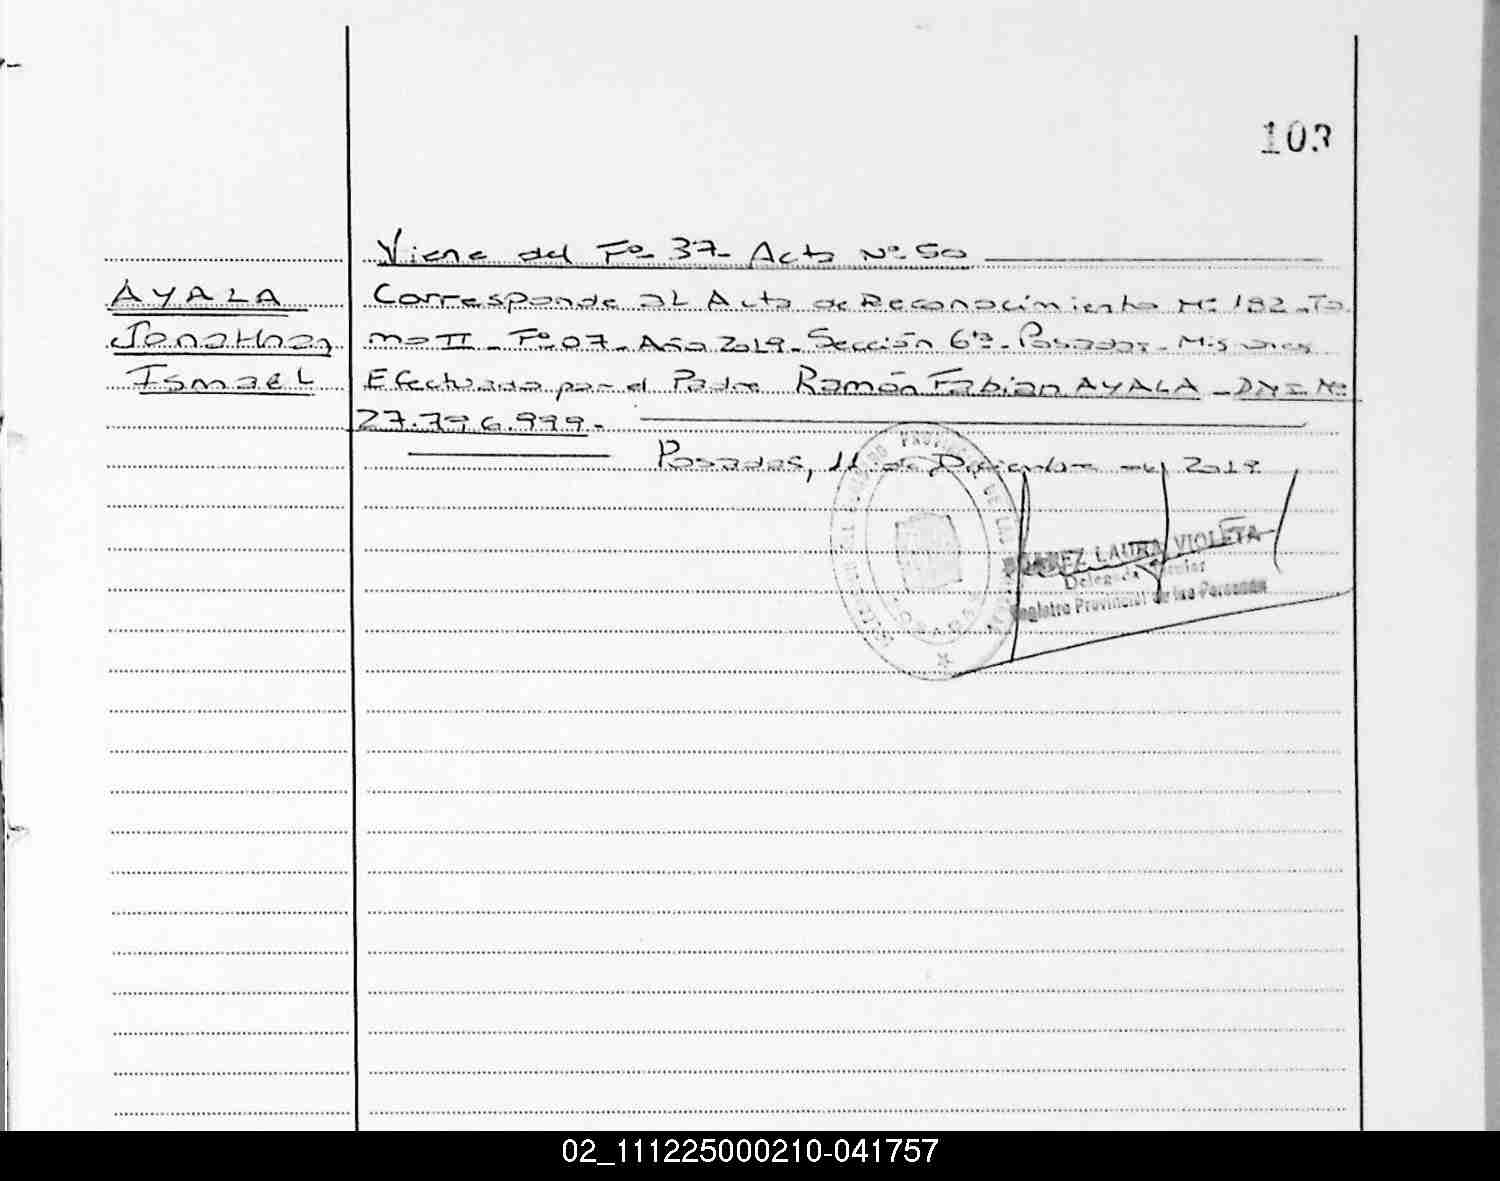 103
Viene del Fº 37- Acta Nº 50
AYALA
Corresponde al Acta de Reconocimiento Nº 182 - To
Jonathan
mo II - Fº 07 - Año 2019 - Sección 6ª - Posadas - Misiones
Ismael
Efectuada por el Padre Ramón Fabian AYALA - DNI Nº
27.796.999.-
Posadas, 11 de Diciembre de 2019
LAURA VIOLETA
Delegada Titular
Registro Provincial de las Personas
02_111225000210-041757